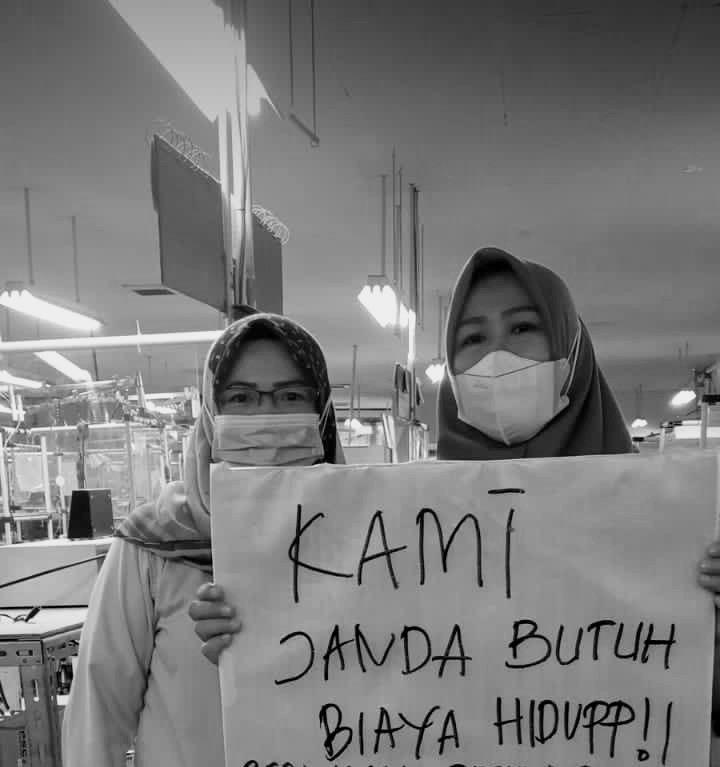 KAMI
JANDA BUTUH
BIAYA HIDUPP!!